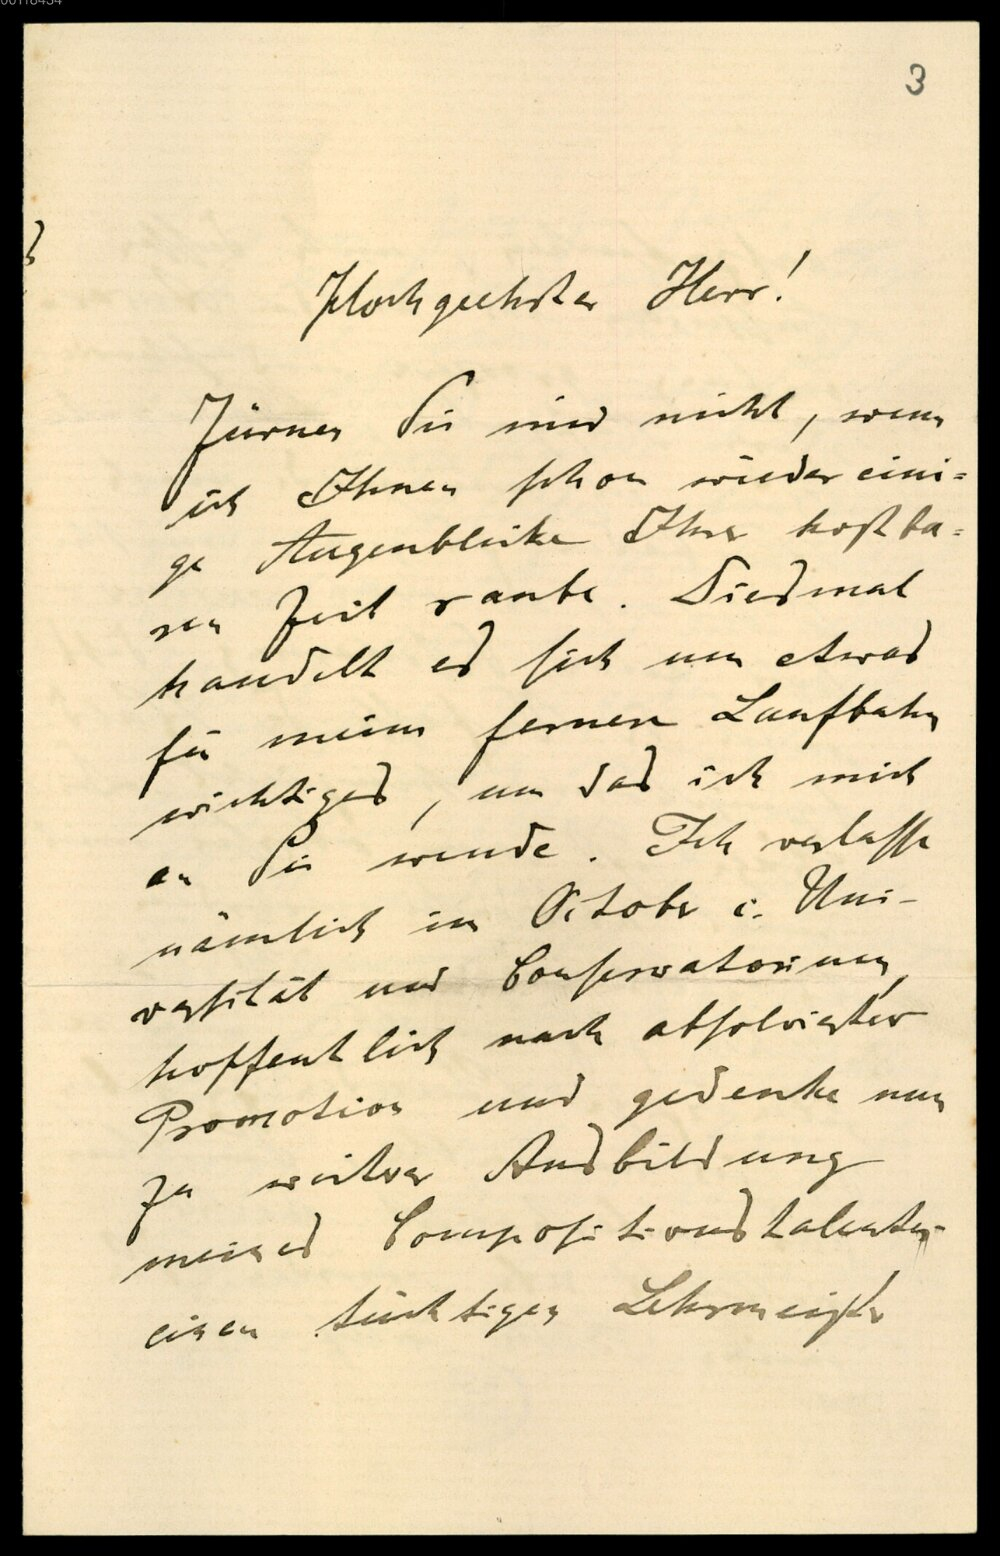 00118434
3
Hochgeehrter Herr!
Zürnen Sie mir nicht, wenn
ich Ihnen schon wieder eini=
ge Augenblicke Ihrer kostba=
ren Zeit raube. Diesmal
handelt es sich um etwas
für meine fernere Laufbahn
wichtiges, um das ich mich
an Sie wende. Ich verlasse
nämlich im October d. Uni-
versität und Conservatorium,
hoffentlich nach absolvierter
Promotion und gedenke nun
zu weiterer Ausbildung
meines Compositionstalentes
einen tüchtigen Lehrmeister